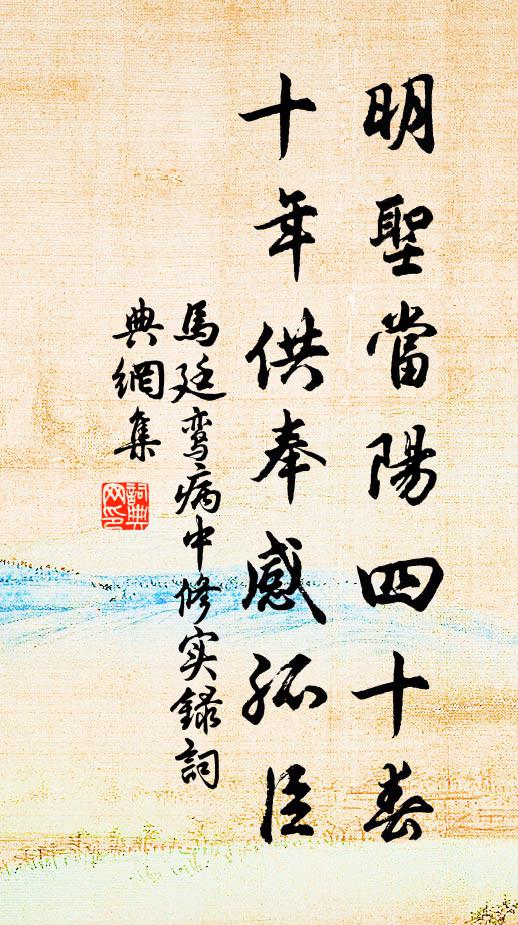 明聖當陽四十春
十年供奉感孤臣
馬廷鸾病中修实録詞
典網集
詞典网印